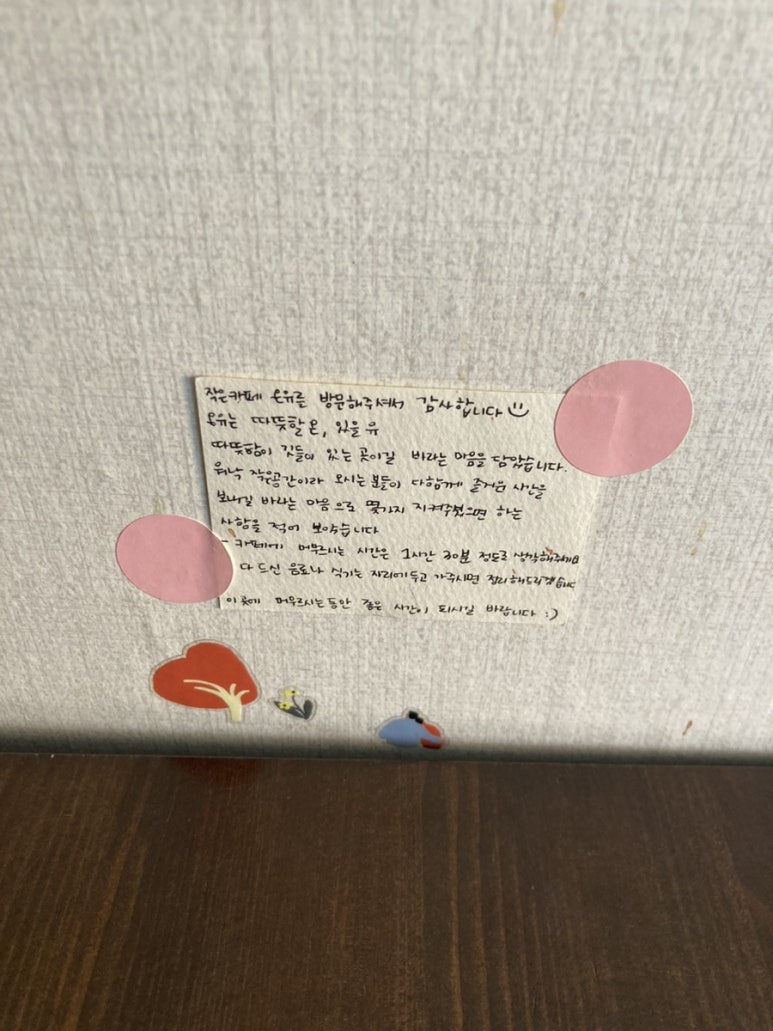 작은카페 온유를 방문해주셔서 감사합니다
온유는 따뜻할 온, 있을 유
따뜻함이 깃들어 있는 곳이길 바라는 마음을 담았습니다.
워낙 작은공간이라 오시는 분들이 다함께 즐거운 시간을
보내길 바라는 마음으로 몇가지 지켜주셨으면 하는
사항을 적어 보았습니다
- 카페에 머무르시는 시간은 1시간 30분 정도로 생각해주세요
다 드신 음료나 식기는 자리에 두고 가주시면 정리해드리겠습니다
이 곳에 머무르시는 동안 좋은 시간이 되시길 바랍니다 :)